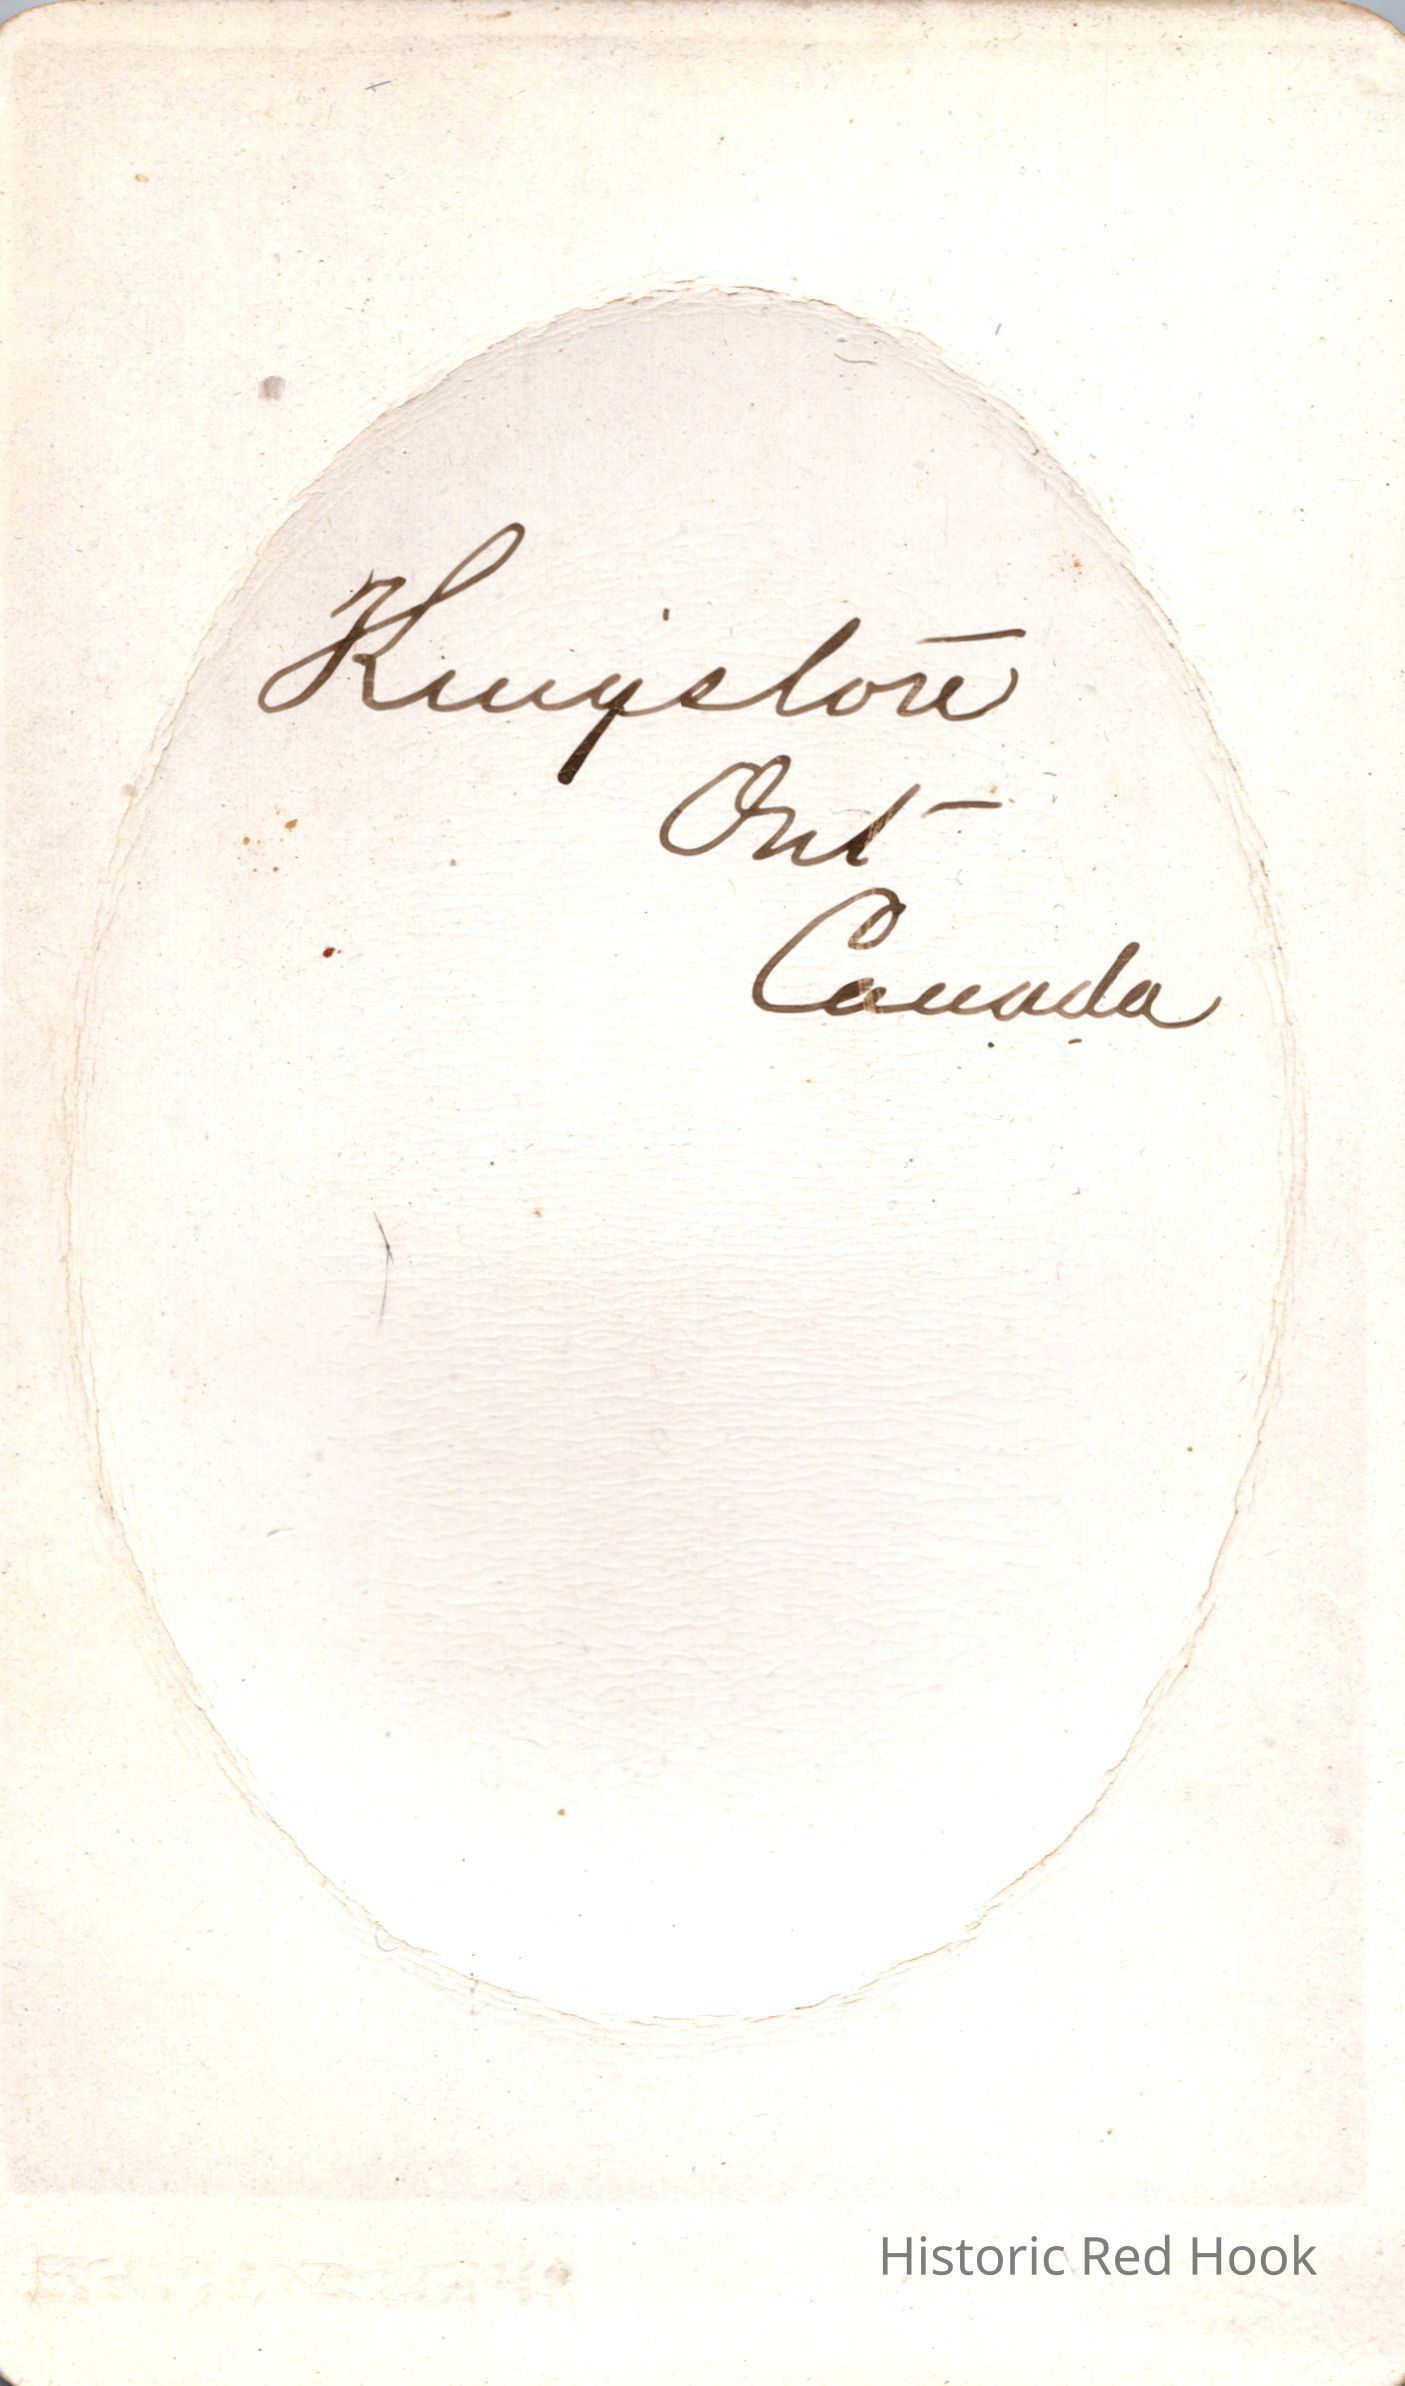 Kingston
Ont
Canada
Historic Red Hook